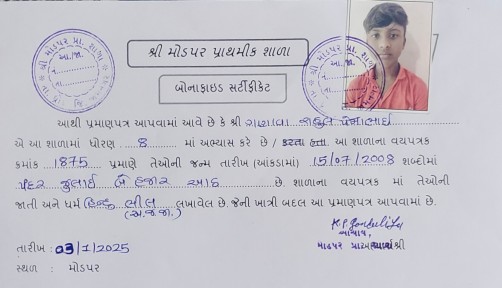 શ્રી મોડપર પ્રાથમીક શાળા
બોનાફાઇડ સર્ટીફીકેટ
શ્રી મોડપર પ્રા. શાળા
આ.જા.
આથી પ્રમાણપત્ર આપવામાં આવે છે કે શ્રી રાણાવા
એ આ શાળામાં ધોરણ 8 માં અભ્યાસ કરે છે / કરતા હતા. આ શાળાના વયપત્રક
ક્રમાંક 1875 પ્રમાણે તેઓની જન્મ તારીખ (આંકડામાં) 15/07/2008 શબ્દોમાં
પંદર જુલાઈ બે હજાર આઠ છે. શાળાના વયપત્રક માં તેઓની
જાતી અને ધર્મ હિન્દુ ભીલ લખાવેલ છે. જેની ખાત્રી બદલ આ પ્રમાણપત્ર આપવામાં છે.
(અ.જ.જા.)
આચાર્ય,
તારીખ : 03/1/2025
સ્થળ : મોડપર